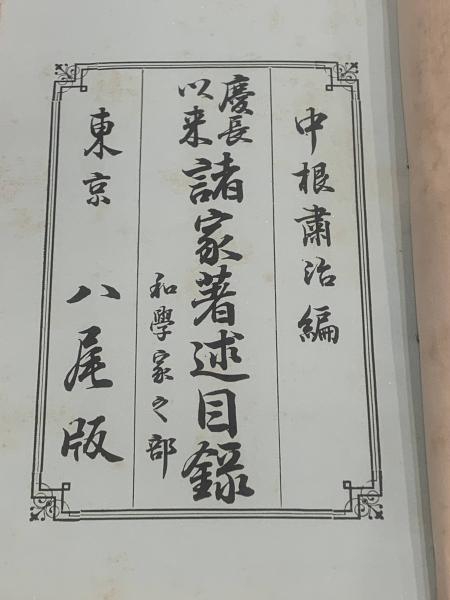 中根肅治編
慶長以来 諸家著述目錄
和學家之部
東京 八尾版